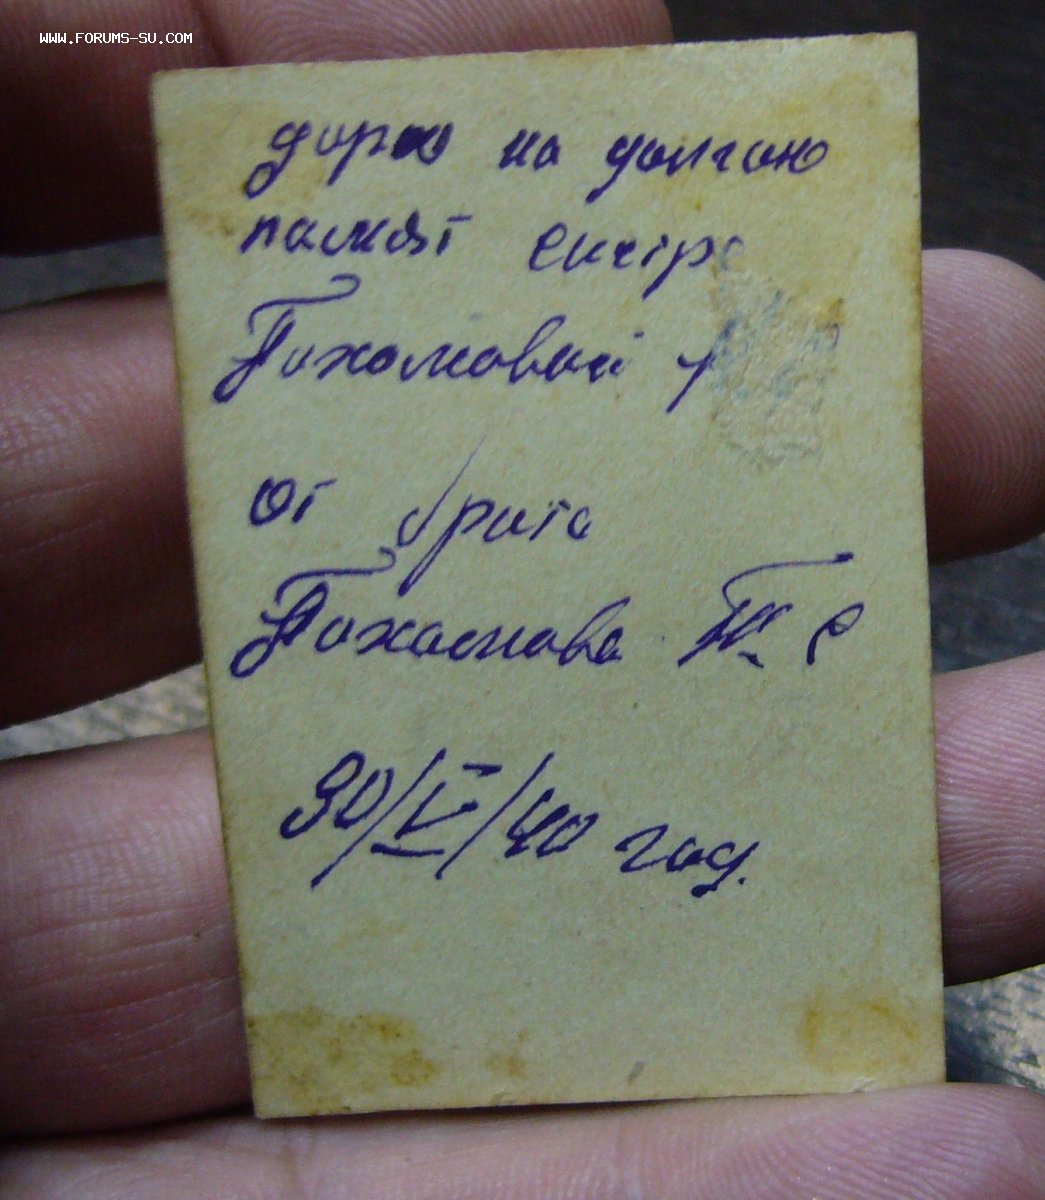 WWW.FORUMS-SU.COM
дарю на долгаю
памят систре
Пахомовай
от брата
Пахомова
30/V/40 год.